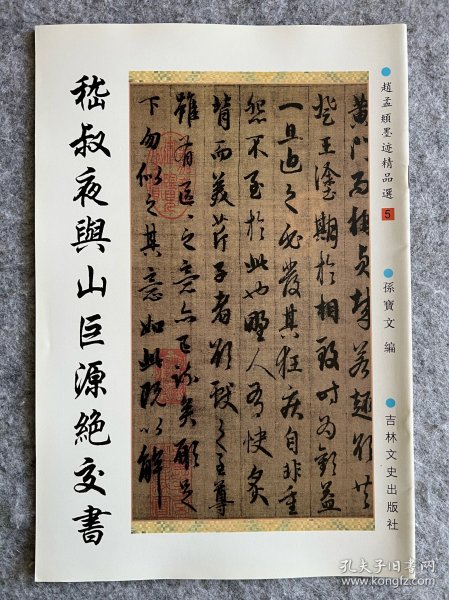 趙孟頫墨迹精品選 5
孫寶文 編
吉林文史出版社
黃門而稱貞哉若趣欲共
登王塗期於相致時為歡益
一旦迫之必發其狂疾自非重
怨不至於此也野人有快炙
背而美芹子者欲獻之至尊
雖有區〻之意亦已疏矣願足
下勿似之其意如此既以解
嵇叔夜與山巨源絶交書
孔夫子旧书网
www.kongfz.com